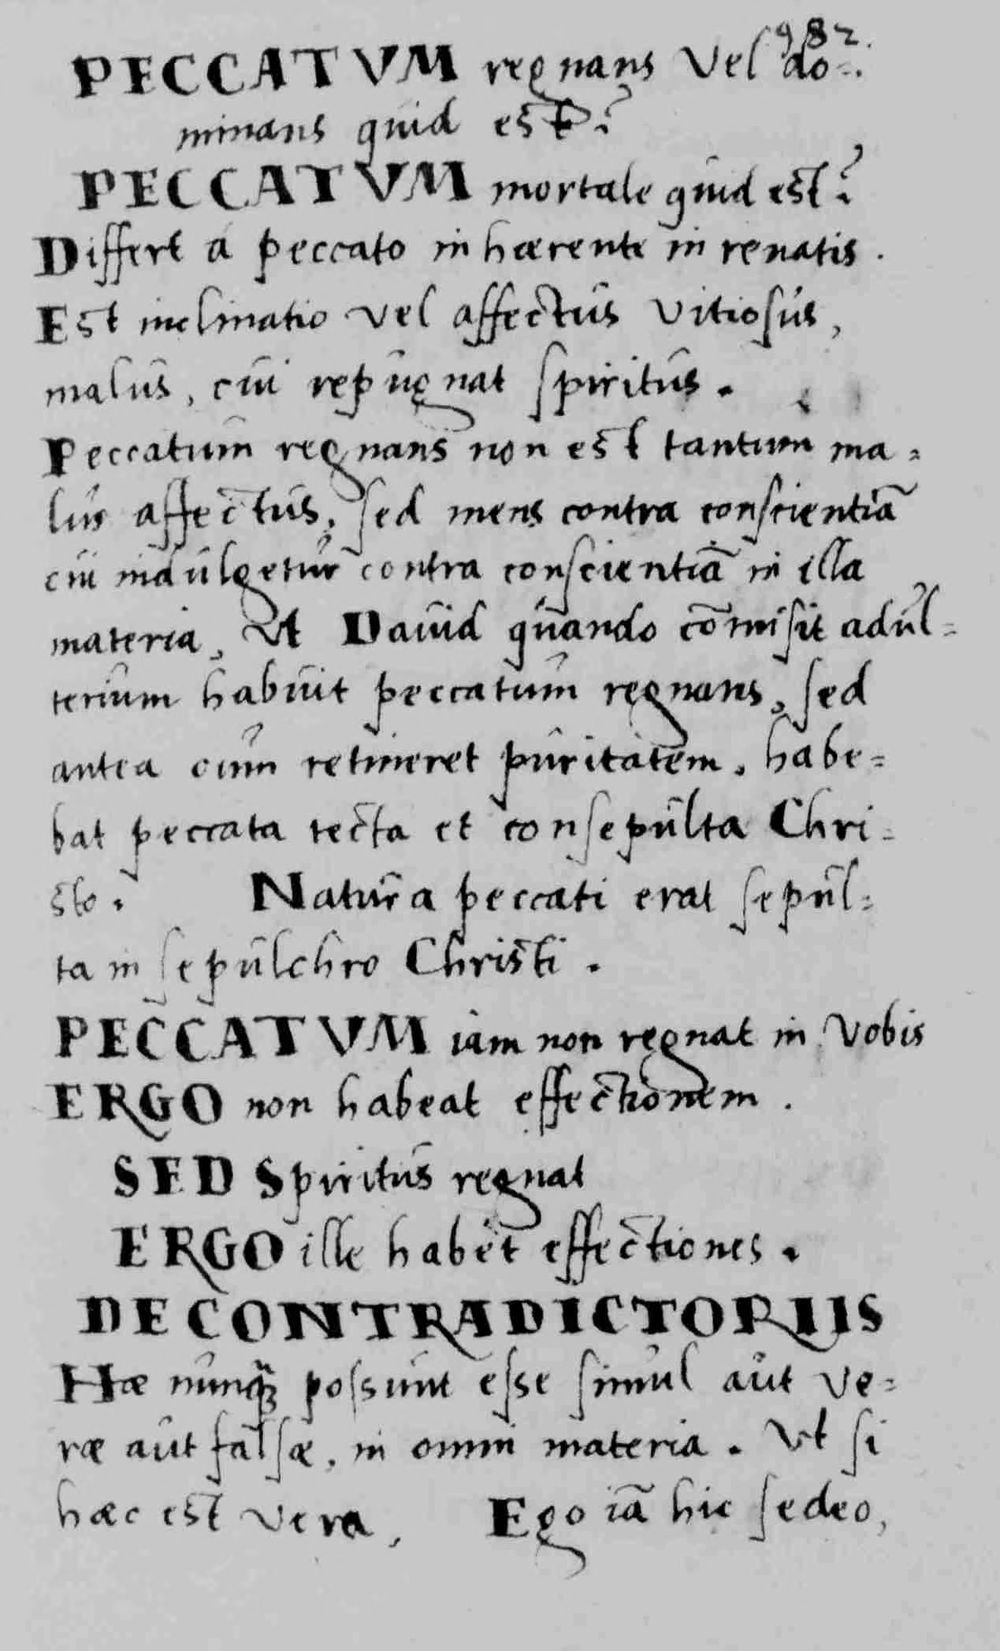 982.
PECCATVM regnans vel do=
minans quid est?
PECCATVM mortale quid est?
Differt a peccato inhærente in renatis.
Est inclinatio vel affectus vitiosus,
malus, cui repugnat spiritus.
Peccatum regnans non est tantum ma=
lus affectus, sed mens contra conscientiā
cui indulgetur contra conscientiā in illa
materia, Ut Dauid quando cōmisit adul=
terium habuit peccatum regnans, sed
antea cum retineret puritatem, habe=
bat peccata tecta et consepulta Chri=
sto. Natura peccati erat sepul=
ta in sepulchro Christi.
PECCATVM iam non regnat in vobis
ERGO non habeat effectionem.
SED Spiritus regnat
ERGO ille habet effectiones.
DE CONTRADICTORIIS
Hæ nunq̄ꝫ possunt esse simul aut ve=
ræ aut falsæ, in omni materia. Ut si
hæc est vera, Ego iā hic sedeo,